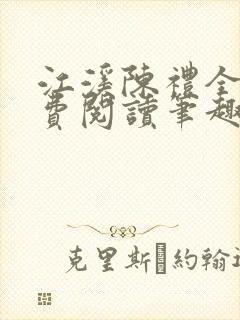 江溪陳禮全
費閱讀筆趣
克里斯�約翰遜